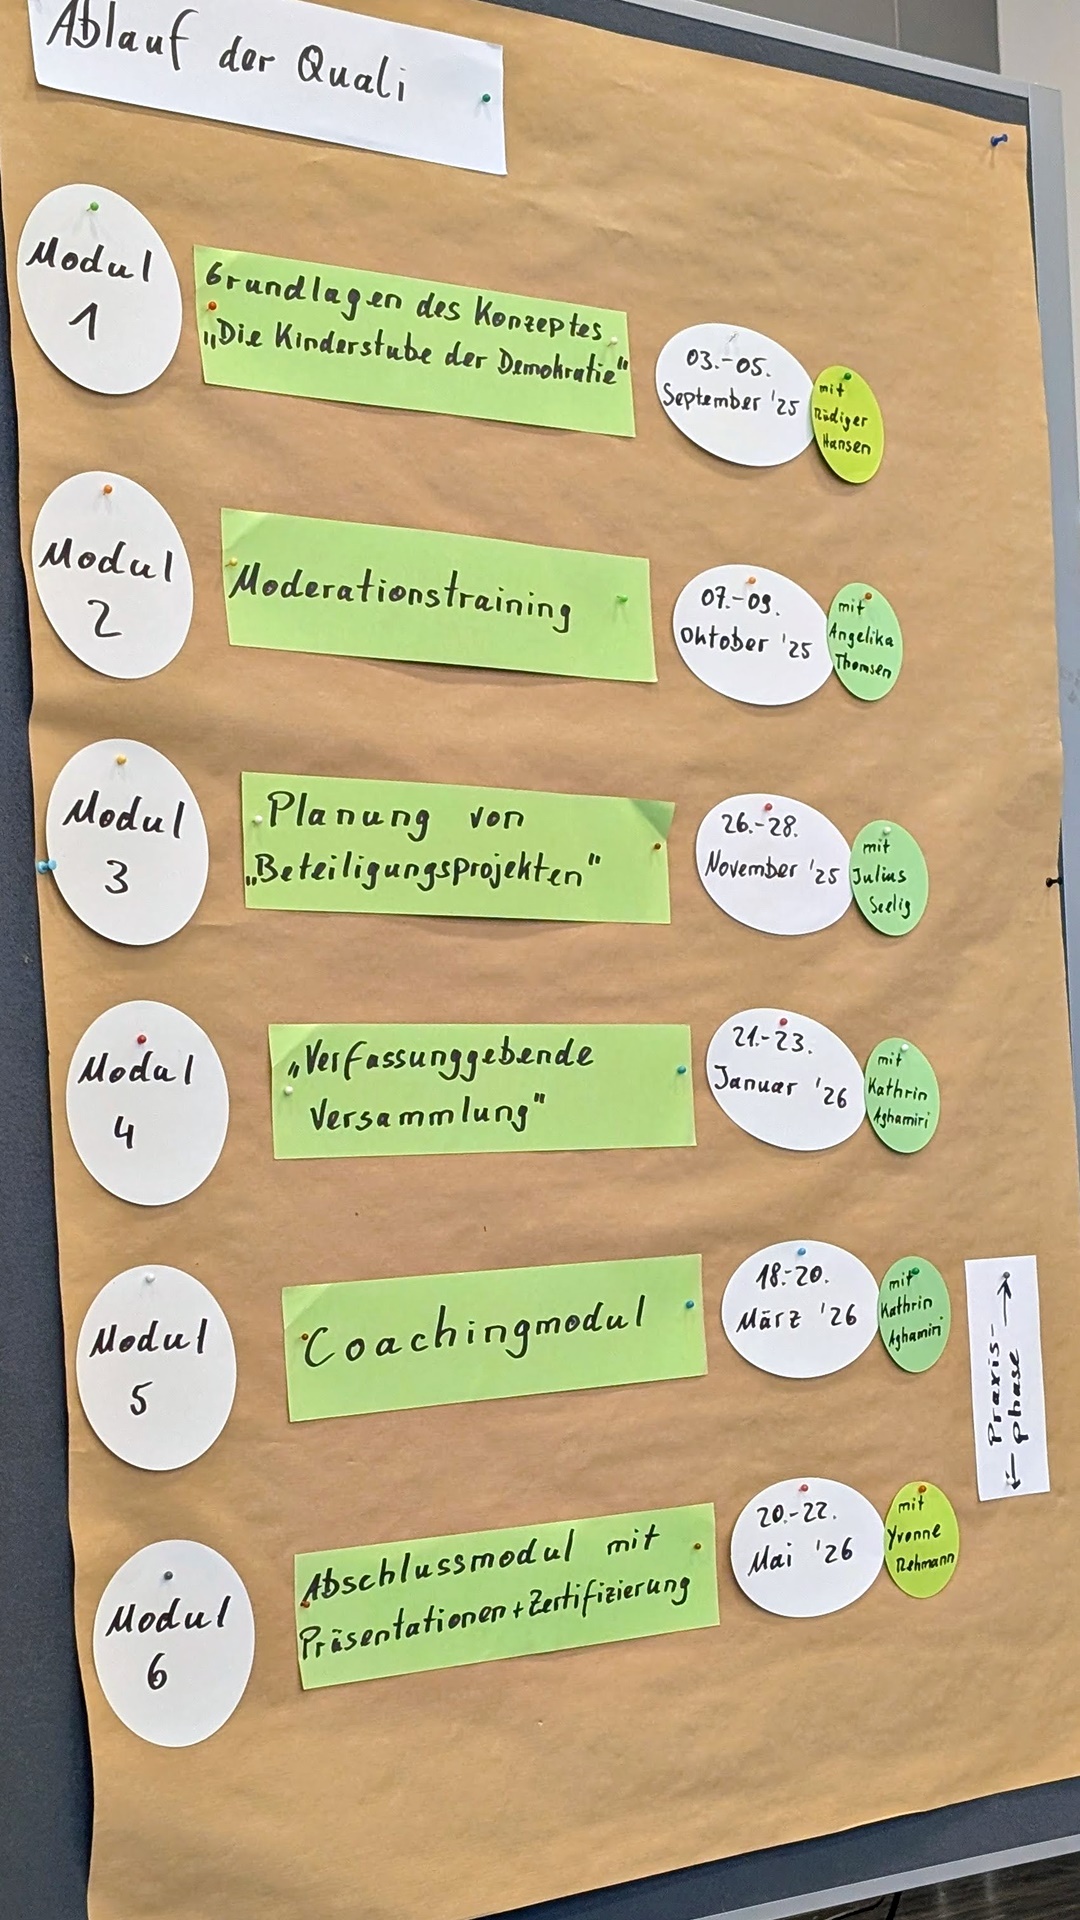 Ablauf der Quali
Modul
1
Grundlagen des Konzeptes
„Die Kinderstube der Demokratie“
03.-05.
September '25
mit
Rüdiger
Hansen
Modul
2
Moderationstraining
07.-09.
Oktober '25
mit
Angelika
Thomsen
Modul
3
Planung von
„Beteiligungsprojekten“
26.-28.
November '25
mit
Julius
Seelig
Modul
4
„Verfassunggebende
Versammlung“
21.-23.
Januar '26
mit
Kathrin
Aghamiri
Modul
5
Coachingmodul
18.-20.
März '26
mit
Kathrin
Aghamiri
← Praxis- →
phase
Modul
6
Abschlussmodul mit
Präsentationen + Zertifizierung
20.-22.
Mai '26
mit
Yvonne
Rehmann